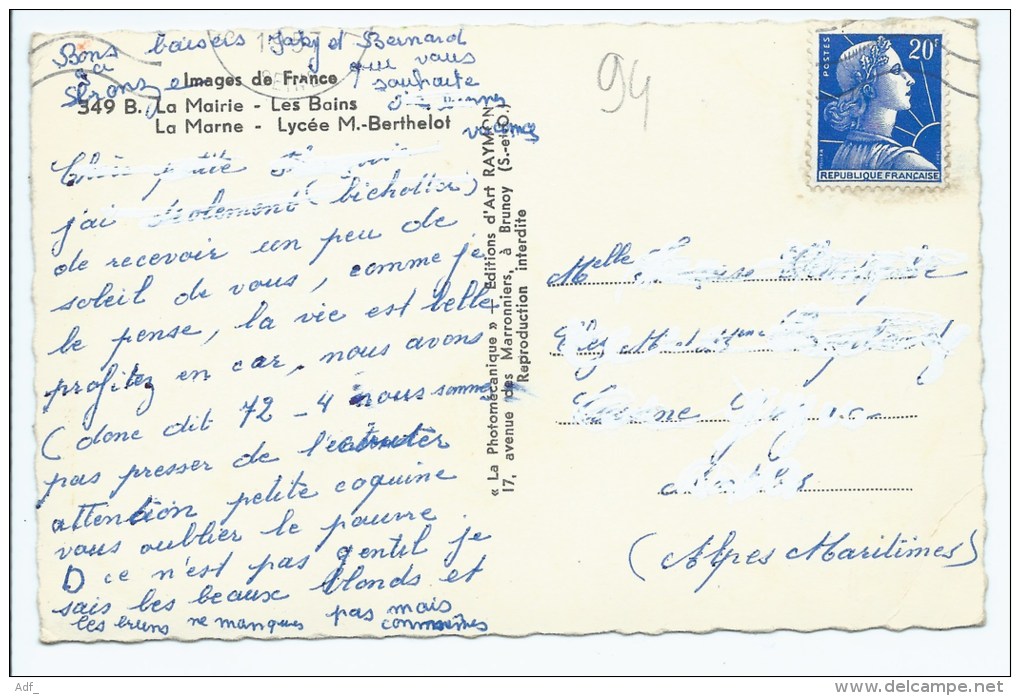 Bons baisers Jaky et Bernard
qui vous
souhaite
bonnes
vacances
1957
SEINE
Images de France
349 B. La Mairie - Les Bains
La Marne - Lycée M.-Berthelot
94
POSTES
20F
REPUBLIQUE FRANÇAISE
Chère petite
j'ai (bichotter)
de recevoir un peu de
soleil de vous, comme je
le pense, la vie est belle
profitez en car, nous avons
(donc dit 72 - 4 nous sommes
pas presser de l'ecouter
attention petite coquine
vous oublier le pauvre
D ce n'est pas gentil je
sais les beaux blonds et
les bruns ne manques pas mais
« La Photomécanique » - Editions d'Art RAYMON
17, avenue des Marronniers, à Brunoy (S.-et-O.)
Reproduction interdite
Melle
Chez M. et Mme
(Alpes Maritimes)
Adf_
©delcampe.net